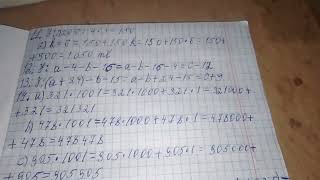 2) k=6=150+150·k=150+150·6=150+
+900=1050 ml
12. 8:a-4-b-15=a-b-15-4=0-12
13. 8.(a+39)-b-15=a-b+24-15=0+9
14. a) 321·1001=321·1000+321·1=321000+
+321=321321
b) 478·1001=478·1000+478·1=478000+
+478=478478
c) 905·1001=905·1000+905·1=905000+
+905=905905